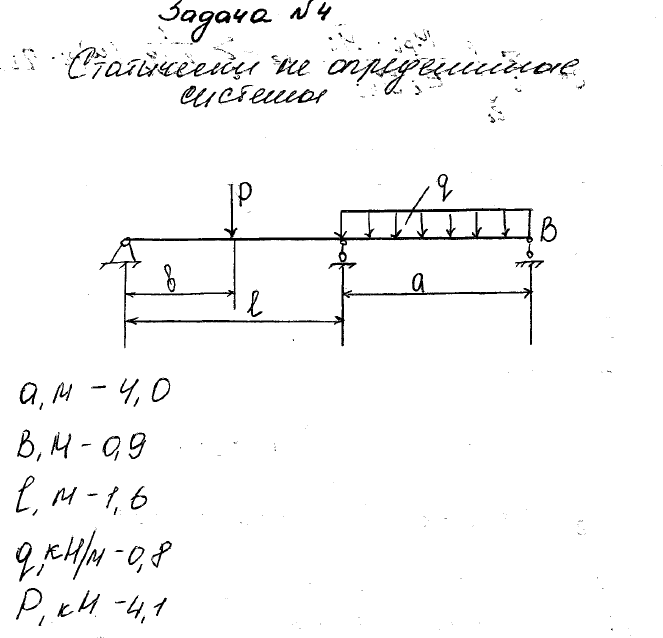 Задача №4
Статически не определимые
системы
P
q
B
b
l
a
a, м - 4,0
В, м - 0,9
l, м - 1,6
q, кН/м - 0,8
P, кН - 4,1